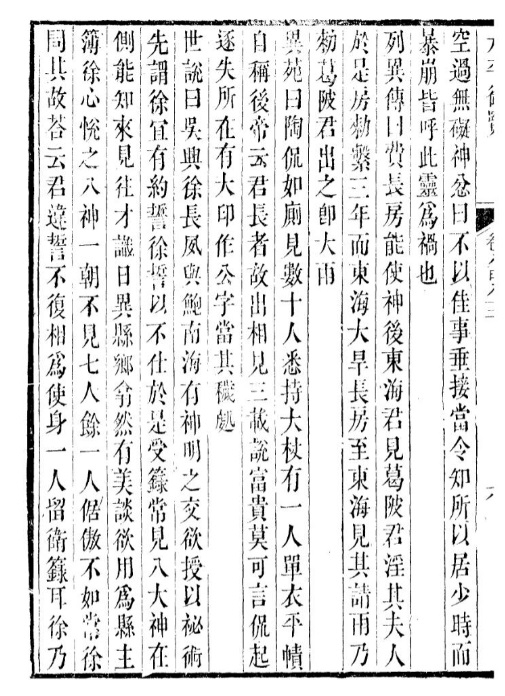 太平御覽
空過無礙神忿曰不以佳事垂接當令知所以居少時而
暴崩皆呼此靈爲禍也
列異傳曰費長房能使神後東海君見葛陂君淫其夫人
於是房勑繫三年而東海大旱長房至東海見其請雨乃
勑葛陂君出之卽大雨
異苑曰陶侃如廁見數十人悉持大杖有一人單衣平幘
自稱後帝云君長者故出相見三載說富貴莫可言侃起
逐失所在有大印作公字當其穢處
世說曰吳興徐長夙與鮑南海有神明之交欲授以祕術
先謂徐宜有約誓徐誓以不仕於是受籙常見八大神在
側能知來見往才識日異縣鄉翕然有美談欲用爲縣主
簿徐心悅之八神一朝不見七人餘一人倨傲不如常徐
問其故荅云君違誓不復相爲使身一人留衛籙耳徐乃